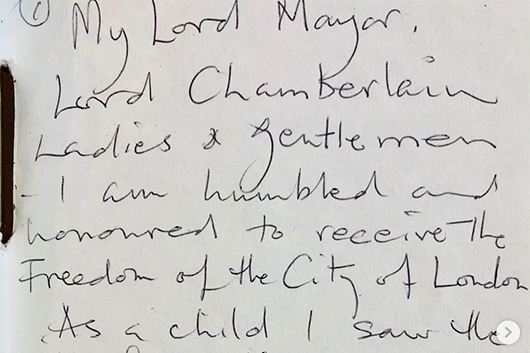 ① My Lord Mayor,
Lord Chamberlain
Ladies & gentlemen
- I am humbled and
honoured to receive the
Freedom of the City of London
As a child I saw the